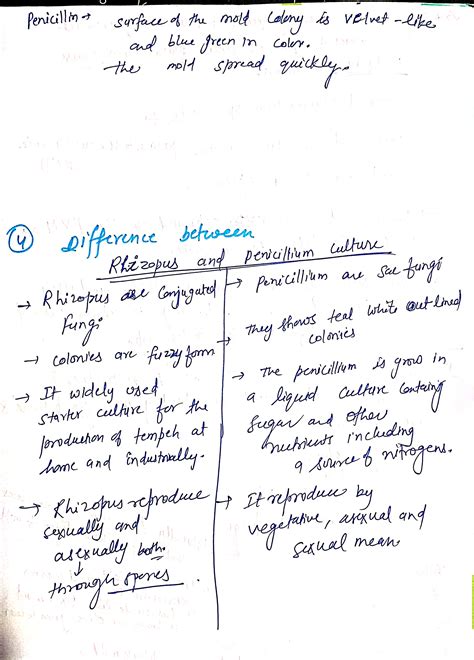 Penicillin → surface of the mold colony is velvet-like
and blue green in color.
the mold spread quickly.
(4) Difference between
Rhizopus and penicillium culture
→ Rhizopus are Conjugated
fungi
→ colonies are fuzzy form
→ It widely used
starter culture for the
production of tempeh at
home and industrially.
→ Rhizopus reproduce
sexually and
asexually both.
↓
through spores.
→ Penicillium are sac fungi
They shows teal white outlined
colonies
→ The penicillium is grow in
a liquid culture containg
sugar and other
nutrients including
a source of nitrogens.
→ It reproduce by
vegetative, asexual and
sexual mean.